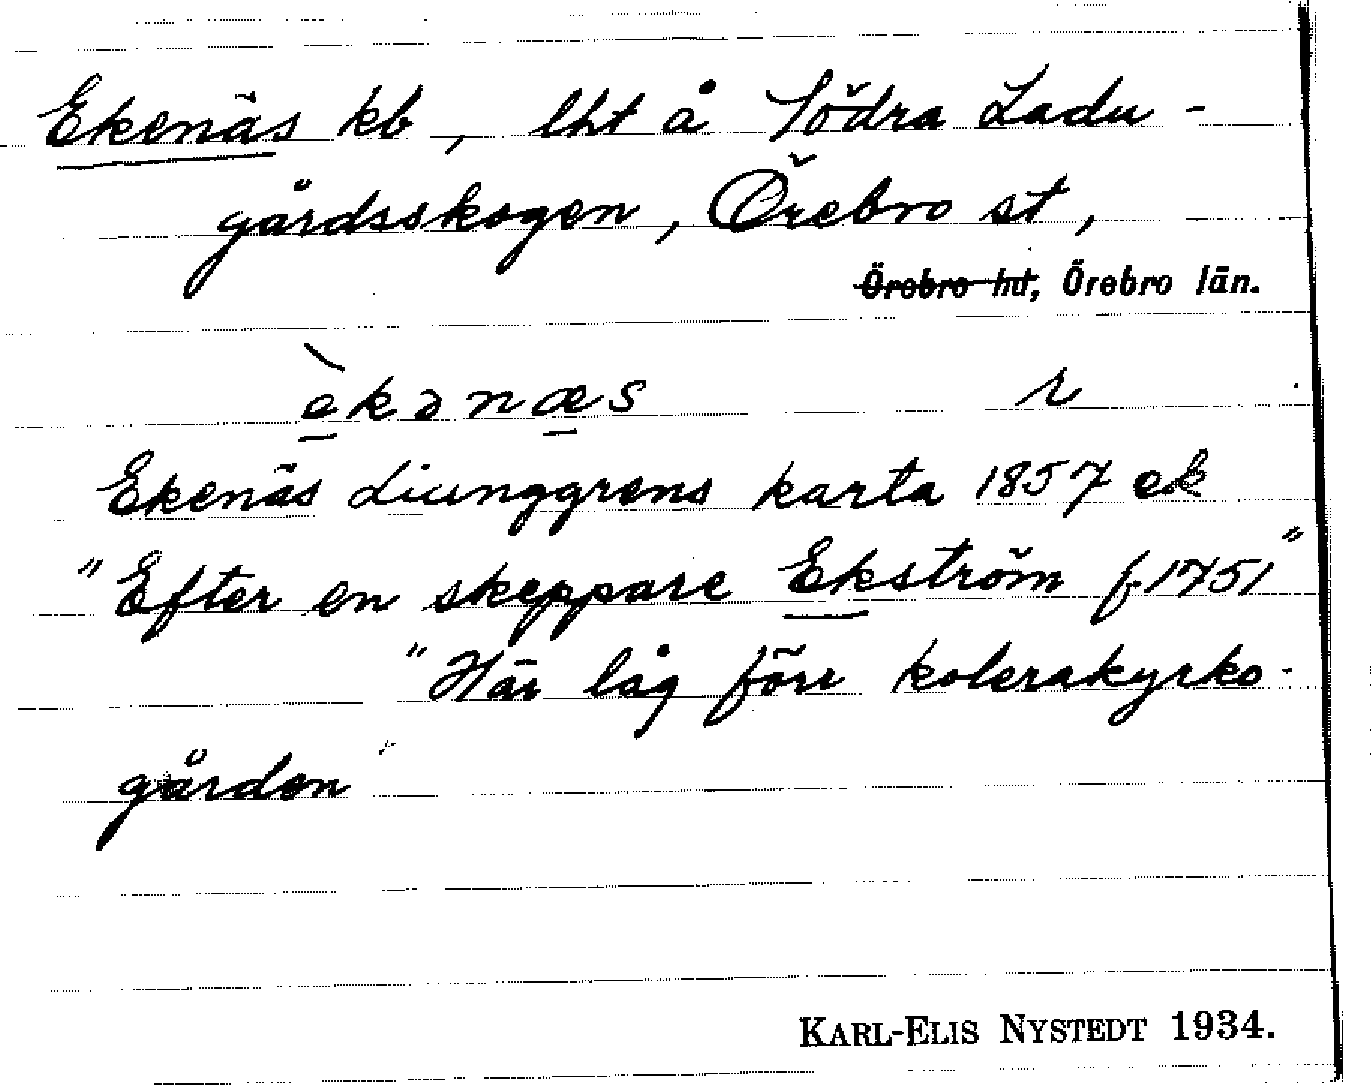 Ekenäs kb, lht å Södra Ladu-
gårdsskogen, Örebro st,
Örebro hd, Örebro län.
èkənæs r
Ekenäs Liunggrens karta 1857 ek
"Efter en skeppare Ekström f 1751"
"Här låg förr kolerakyrko-
gården"
KARL-ELIS NYSTEDT 1934.